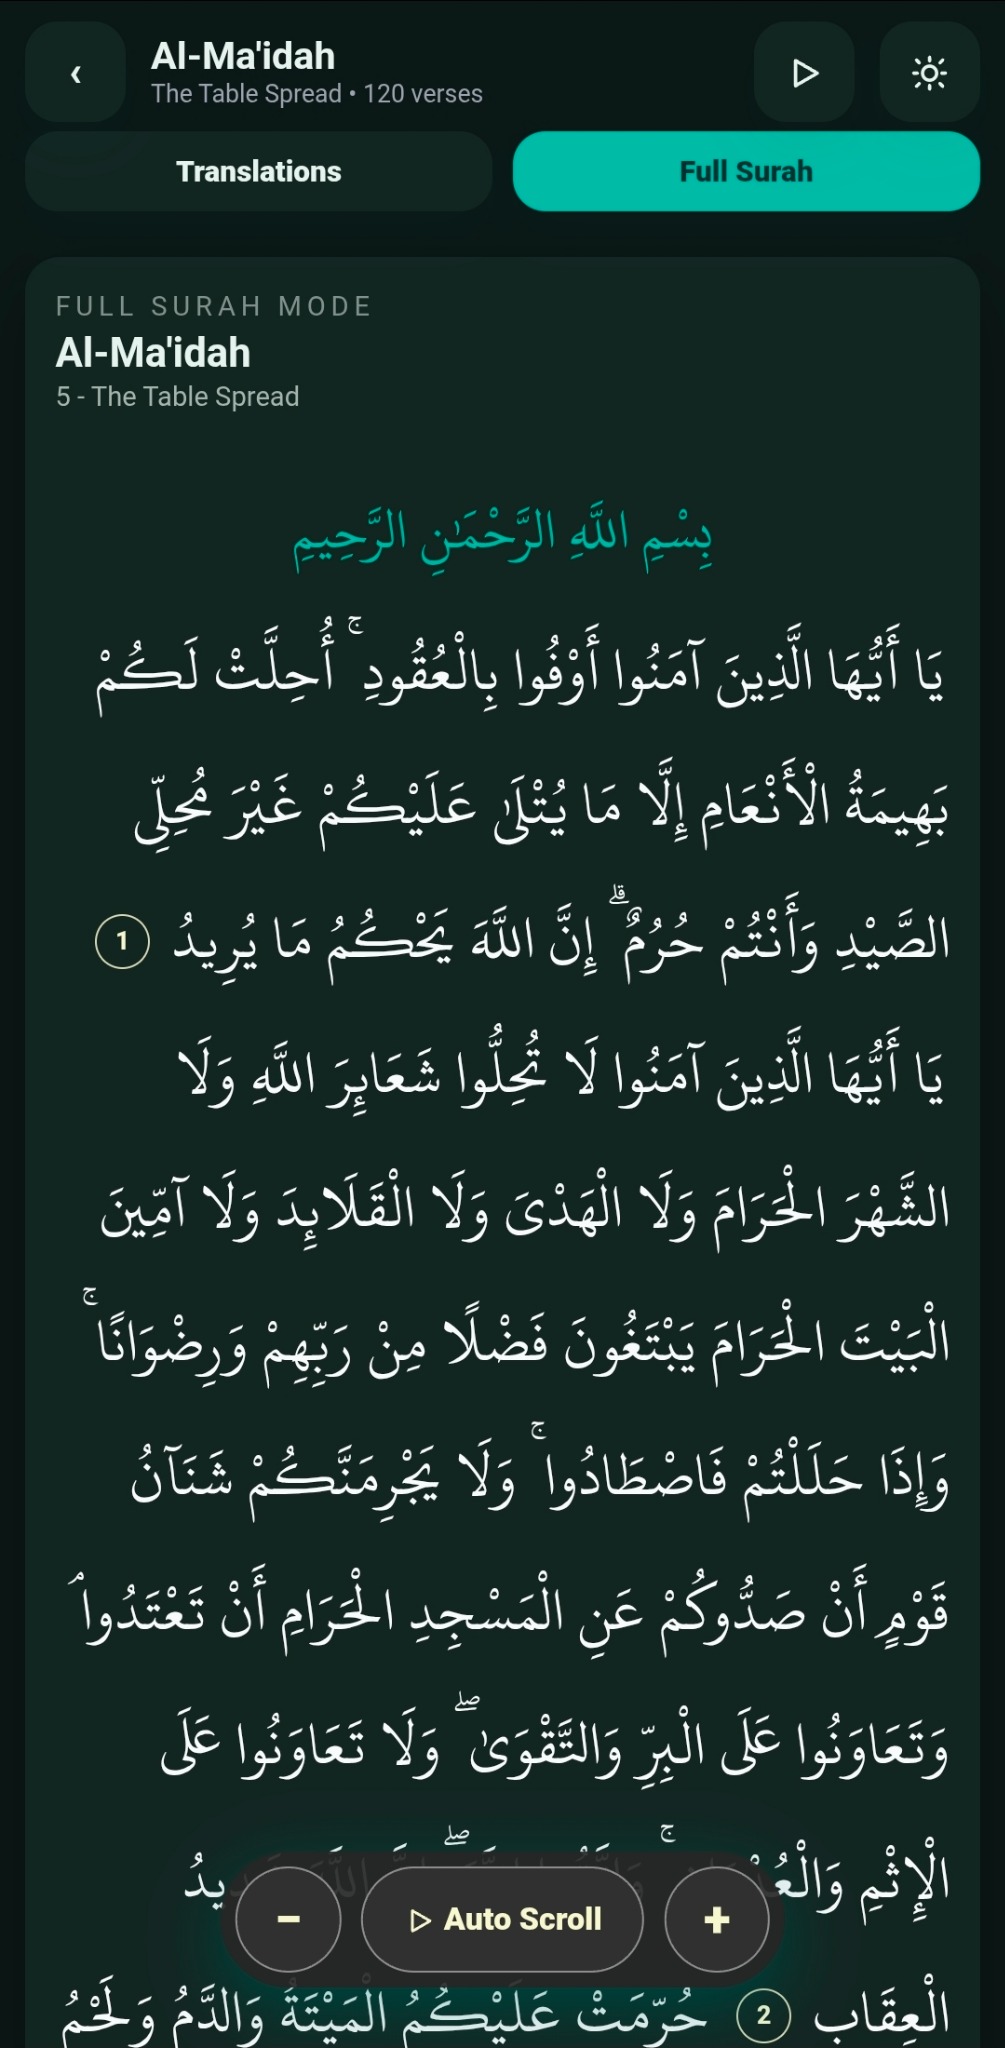 ‹
Al-Ma'idah
The Table Spread • 120 verses
Translations
Full Surah
FULL SURAH MODE
Al-Ma'idah
5 - The Table Spread
بِسْمِ اللَّهِ الرَّحْمَٰنِ الرَّحِيمِ
يَا أَيُّهَا الَّذِينَ آمَنُوا أَوْفُوا بِالْعُقُودِ ۚ أُحِلَّتْ لَكُمْ
بَهِيمَةُ الْأَنْعَامِ إِلَّا مَا يُتْلَىٰ عَلَيْكُمْ غَيْرَ مُحِلِّي
الصَّيْدِ وَأَنْتُمْ حُرُمٌ ۗ إِنَّ اللَّهَ يَحْكُمُ مَا يُرِيدُ 1
يَا أَيُّهَا الَّذِينَ آمَنُوا لَا تُحِلُّوا شَعَائِرَ اللَّهِ وَلَا
الشَّهْرَ الْحَرَامَ وَلَا الْهَدْيَ وَلَا الْقَلَائِدَ وَلَا آمِّينَ
الْبَيْتَ الْحَرَامَ يَبْتَغُونَ فَضْلًا مِنْ رَبِّهِمْ وَرِضْوَانًا ۚ
وَإِذَا حَلَلْتُمْ فَاصْطَادُوا ۚ وَلَا يَجْرِمَنَّكُمْ شَنَآنُ
قَوْمٍ أَنْ صَدُّوكُمْ عَنِ الْمَسْجِدِ الْحَرَامِ أَنْ تَعْتَدُوا ۘ
وَتَعَاوَنُوا عَلَى الْبِرِّ وَالتَّقْوَىٰ ۖ وَلَا تَعَاوَنُوا عَلَى
الْإِثْمِ
− Auto Scroll +
الْعِقَابِ 2 حُرِّمَتْ عَلَيْكُمُ الْمَيْتَةُ وَالدَّمُ وَلَحْمُ